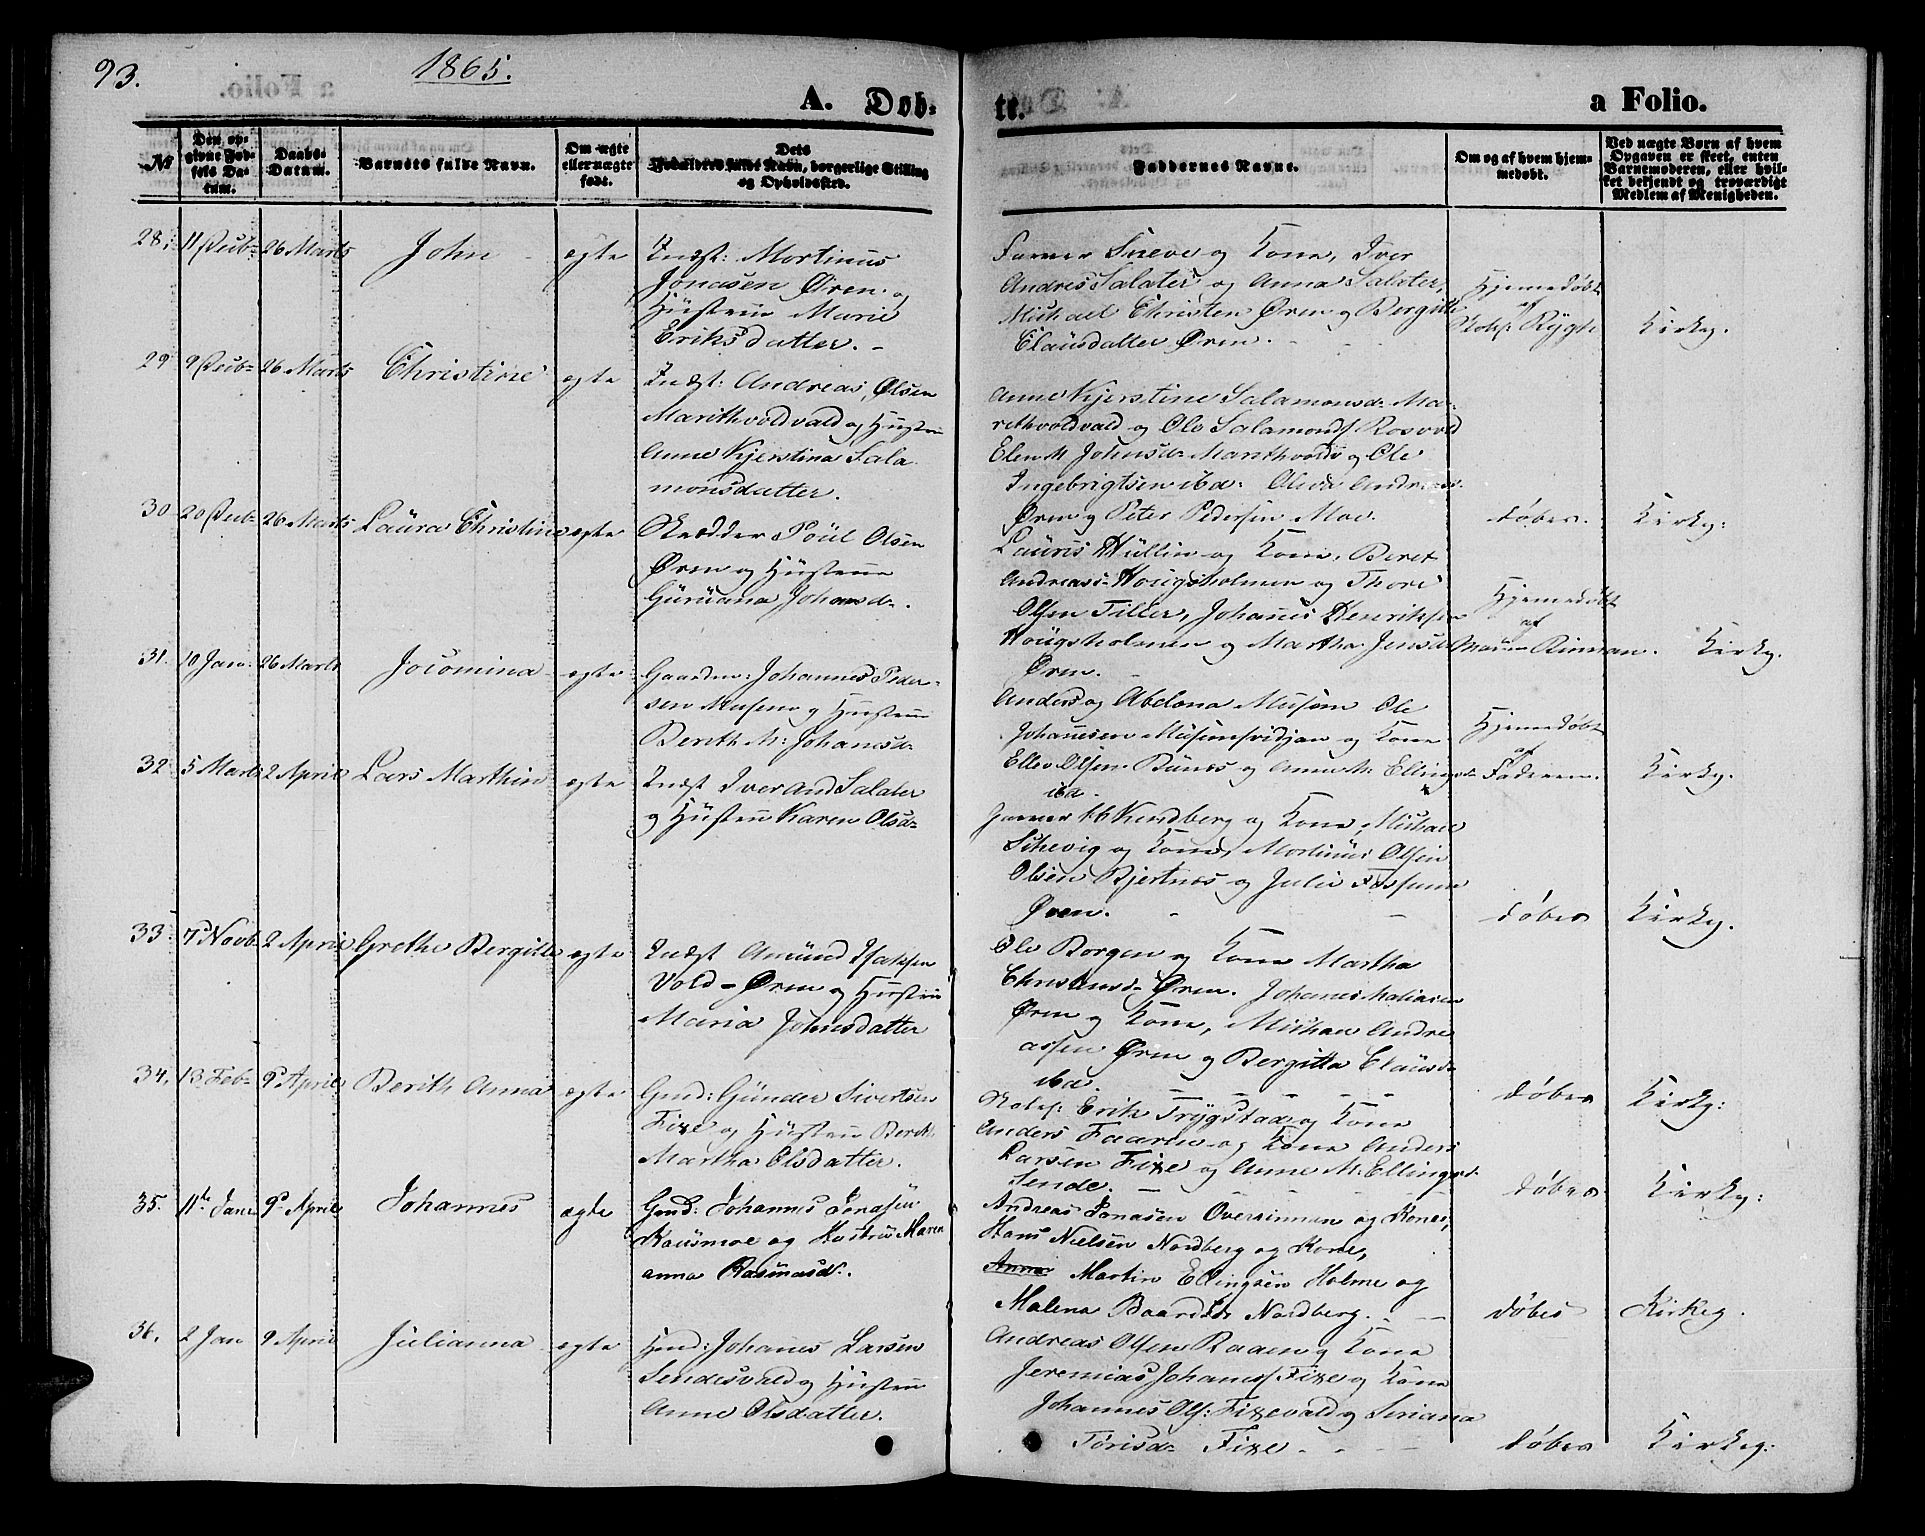 93.
1865.
A. Døb-
te.
a Folio.
No
Den op-
givne Fød-
sels Da-
tum.
Daabs-
Datum.
Barnets fulde Navn.
Om ægte
eller uægte
født.
Dets
Forældres fulde Navn, borgerlige Stilling
og Opholdssted.
Faddernes Navne.
Om og af hvem hjem-
medøbt.
Ved uægte Børn af hvem
Opgaven er skeet, enten
Barnemoderen, eller hvil-
ket bekjendt og troværdigt
Medlem af Menigheden.
28. 11 Feb- 26 Marts John ægte Indst: Mortinus
Jonasen Øren og
Hustrue Marie
Eriksdatter.
Farver Sneve og Kone, Iver
Andreas Salater og Anna Salater,
Michael Christen Øren og Bergitte
Clausdatter Øren.
Hjemedøbt
af
Rygh
Kirkeg.
29 9 Feb- 26 Marts Christine ægte Indst: Andreas Olsen
Marithvoldvald og Hustru
Anne Kjerstina Sala
monsdatter.
Anne Kjerstine Salamonsd- Ma-
rethvoldvald og Ole Salamons. Rosvold
Elen M Johnsd- Marithvold og Ole
Ingebrigtsen ibd:
Øren og Peter Pedersen Moe.
døbes. Kirkeg:
30 20 Feb- 26 Marts Laura Christine ægte Skrædder Poul Olsen
Øren og Hustrue
Guruana Johansd-.
Lauris Hullin og Kone, Beret
Andreasd- Hougsholmen og Thore
Olsen Tiller, Johanes Henriksen
Hougsholmen og Martha Jensd-
Øren.
Hjemedøbt
af
Rinnan. Kirkeg.
31. 10 Jan. 26 Marts Jocomina ægte Gaardm: Johannes Peder-
sen Musem og Hustrue
Berith M: Johansd-
Anders og Abelona Musem Ole
Johannesen og Kone
Ellev Olsen Bunes og Anne M. Ellingsd-
ibd.
Hjemedøbt
af
Faderen. Kirkeg.
32 5 Marts 2 April Lars Marthin ægte Indst Iver And Salater
og Hustrue Karen Olsd-
Garver Kindberg og Kone, Michael
Schevig og Kone, Mortinus Olsen
Olsen Bjertnes og Julie Fossum
Øren.
døbes Kirkeg.
33 7 Novb. 2 April Grethe Bergitte ægte Indst Amund Isaksen
Vold - Øren og Hustru
Maria Johnsdatter
Ole Borgen og Kone Martha
Øren. Johanes Matiasen
Øren og Kone, Michael Andre
assen Øren og Bergitta Clausd-
ibd.
døbes Kirkeg:
34. 13. Feb- 9 April Berith Anna ægte Gmd: Gunder Sivertsen
Fixe og Hustrue Berit
Martha Olsdatter.
Erik Trygstad og Kone
Anders Faaren og Kone Anders
Larsen Fixe og Anne M. Ellingsd-
Sende.
døbes Kirkeg:
35. 11te Janr 9d April Johannes ægte Gmd: Johannes Jonasen
Kausmoe og Hustrue Maren
anna Rasmusd.
Andreas Jonasen Overrinnan og Kone,
Hans Nielsen Nordberg og Kone,
Anne Martin Ellingsen Holme og
Malena Baardsd. Nordberg.
døbes Kirkeg.
36. 2 Jan 9 April Julianna ægte Hmd: Johanes Larsen
Sendesvald og Hustrue
Anne Olsdatter.
Andreas Olsen Raaen og Kone
Jeremias Johans. Fixe og Kone
Johannes Ols: Fixevald og Seriana
Torisd- Fixe.
døbes Kirkeg: